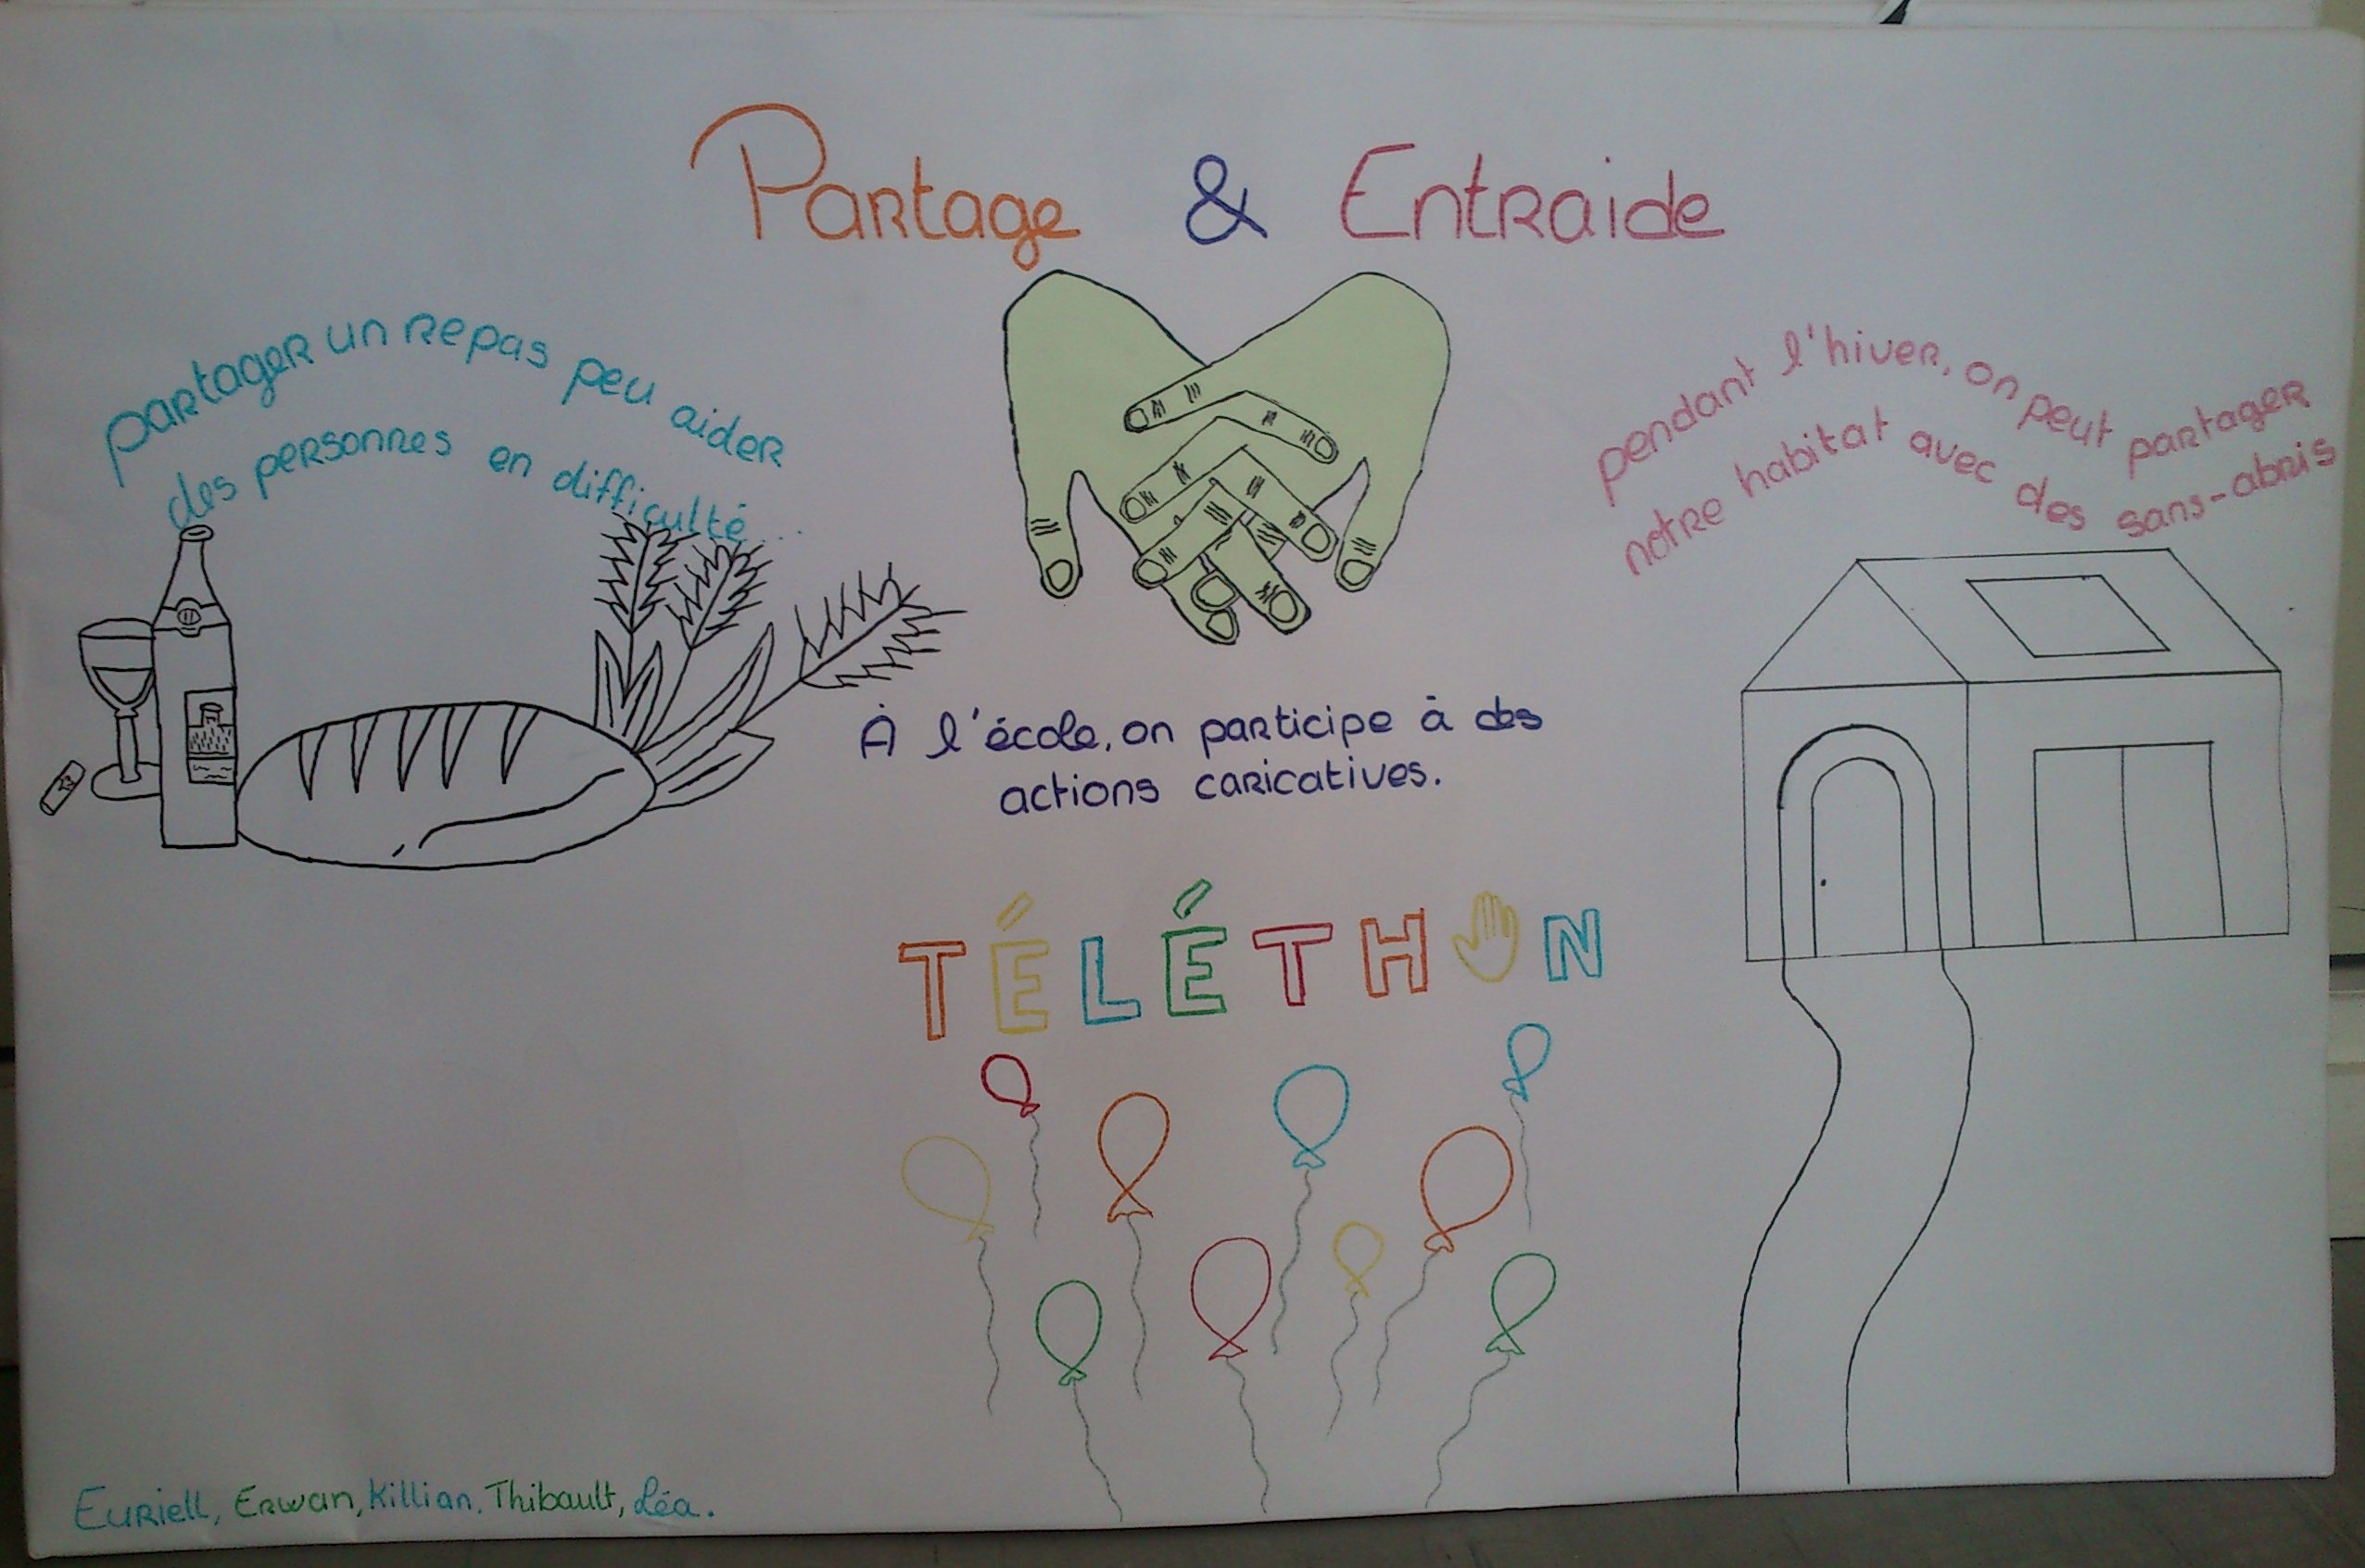 Partage & Entraide
partager un repas peu aider
des personnes en difficulté...
pendant l'hiver, on peut partager
notre habitat avec des sans-abris
À l'école, on participe à des
actions caricatives.
TÉLÉTHON
Euriell, Erwan, Killian, Thibault, Léa.